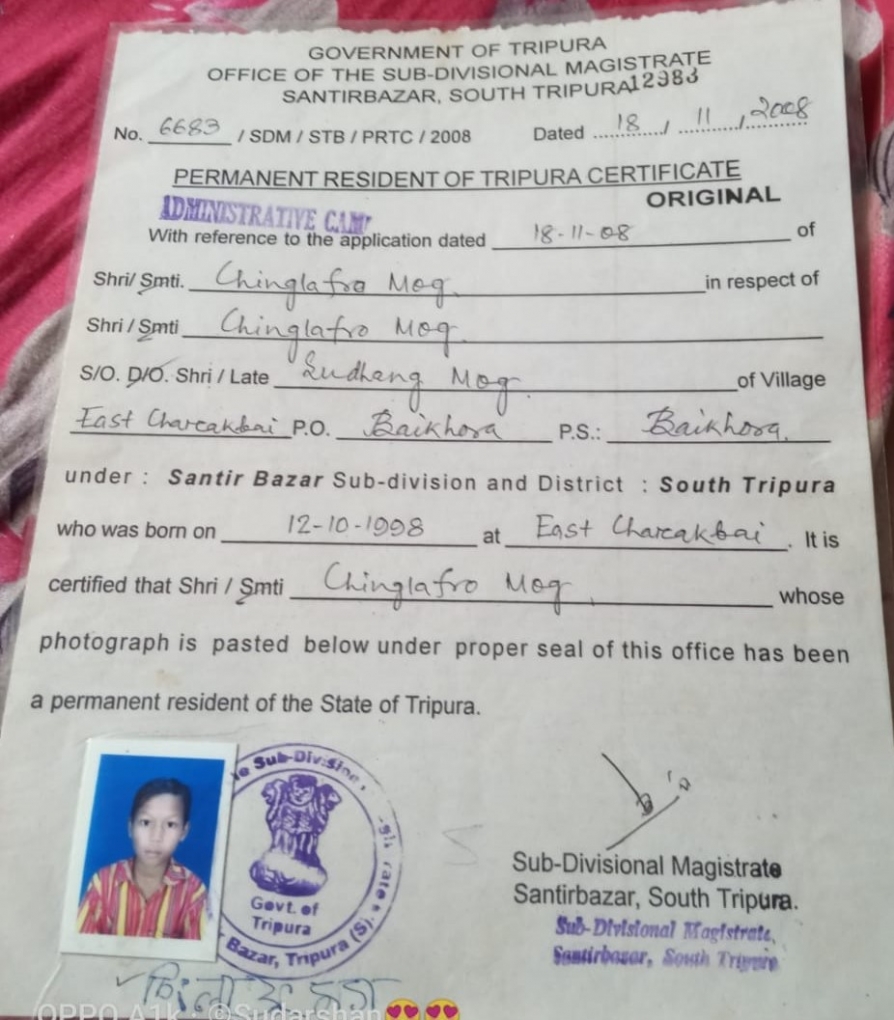 GOVERNMENT OF TRIPURA
OFFICE OF THE SUB-DIVISIONAL MAGISTRATE
SANTIRBAZAR, SOUTH TRIPURA 12983
No. 6683 / SDM / STB / PRTC / 2008 Dated 18 / 11 / 2008
PERMANENT RESIDENT OF TRIPURA CERTIFICATE
ORIGINAL
ADMINISTRATIVE CAMP
With reference to the application dated 18-11-08 of
Shri/ Smti. Chinglafro Mog in respect of
Shri / Smti Chinglafro Mog.
S/O. D/O. Shri / Late Mog. of Village
East Charcakbai P.O. Baikhora P.S.: Baikhora.
under : Santir Bazar Sub-division and District : South Tripura
who was born on 12-10-1998 at East Charcakbai . It is
certified that Shri / Smti Chinglafro Mog whose
photograph is pasted below under proper seal of this office has been
a permanent resident of the State of Tripura.
Govt. of
Tripura
Bazar, Tripura (S).
Sub-Divisional Magistrate
Santirbazar, South Tripura.
Sub-Divisional Magistrate,
Santirbazar, South Tripura
OPPO A1k · ©Sudarshan😍😍